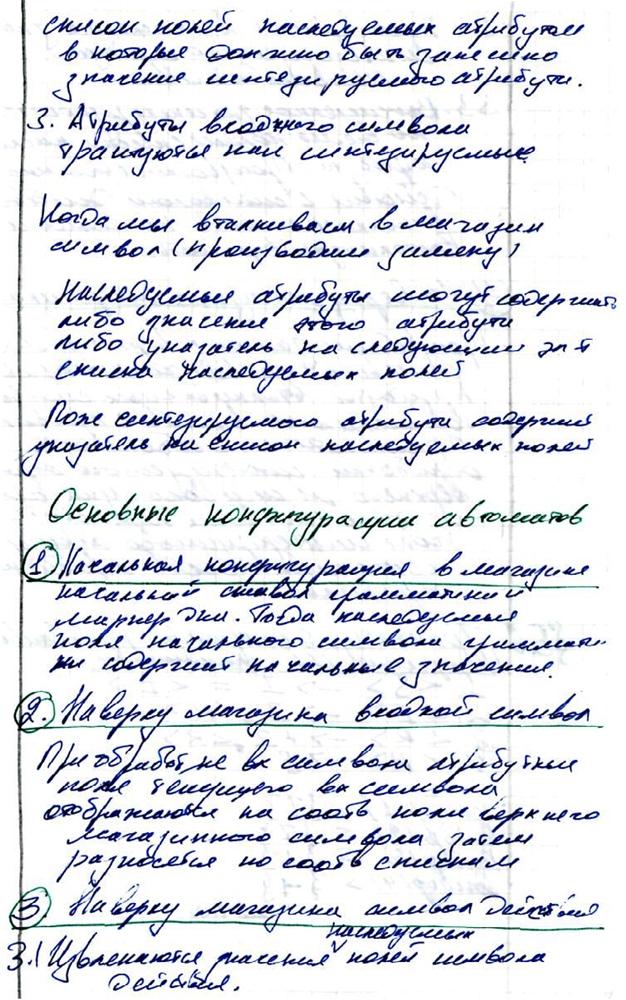 список полей наследуемых атрибутов
в которые должно быть занесено
значение синтезируемого атрибута.
3. Атрибуты входного символа
трактуются как синтезируемые.
Когда мы вталкиваем в магазин
символ (производим замену)
Наследуемые атрибуты могут содержать
либо значение этого атрибута
либо указатель на следующий эл-т
списка наследуемых полей
Поле синтезируемого атрибута содержит
указатель на список наследуемых полей
Основные конфигурации автоматов
1 Начальная конфигурация в магазине
начальный символ грамматики и
маркер дна. Тогда наследуемые
поля начального символа граммати-
ки содержит начальные значения.
2. Наверху магазина входной символ
При обработке вх символа атрибутные
поля текущего вх символа
отображаются на соотв поля верхнего
магазинного символа затем
разносятся по соотв спискам
3. Наверху магазина символ действия
наследуемых
3.1 Извлекаются значения полей символа
действия.